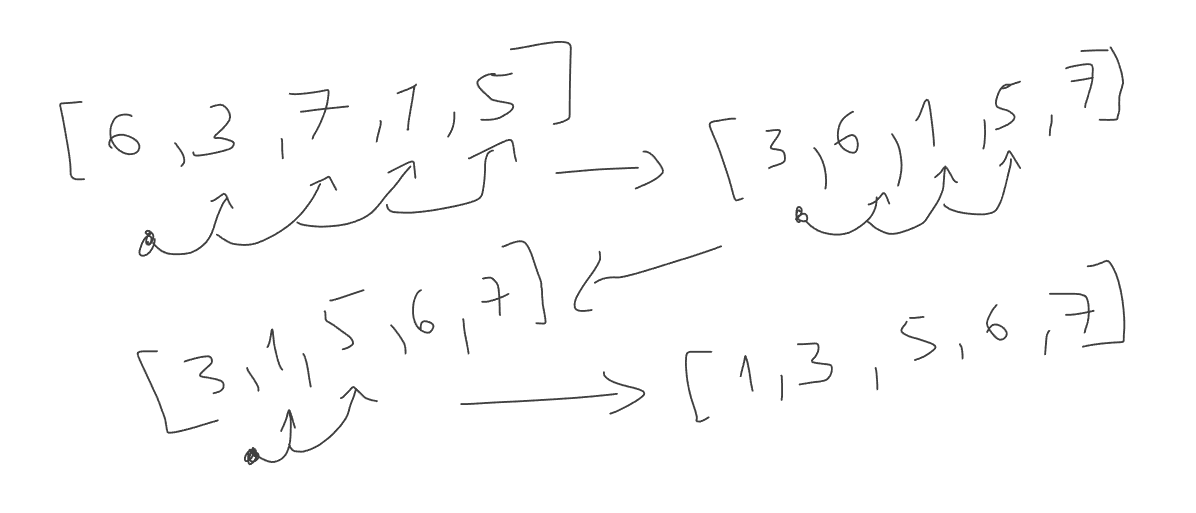 [6,3,7,1,5] → [3,6,1,5,7]
[3,1,5,6,7] → [1,3,5,6,7]